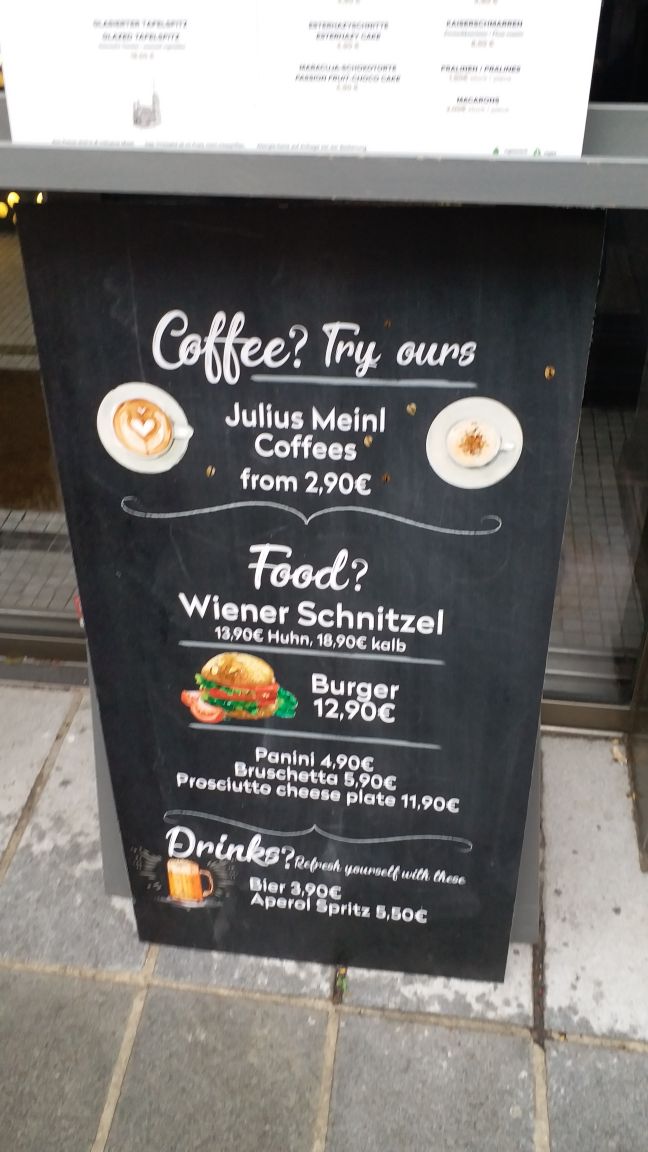 GLASIERTER TAFELSPITZ
GLAZED TAFELSPITZ
ESTERHAZYSCHNITTE
ESTERHAZY CAKE
MARACUJA-SCHOKOTORTE
PASSION FRUIT-CHOCO CAKE
KAISERSCHMARREN
PRALINEN / PRALINES
MACARONS
Coffee? Try ours
Julius Meinl
Coffees
from 2,90€
Food?
Wiener Schnitzel
13,90€ Huhn, 18,90€ kalb
Burger
12,90€
Panini 4,90€
Bruschetta 5,90€
Prosciutto cheese plate 11,90€
Drinks? Refresh yourself with these
Bier 3,90€
Aperol Spritz 5,50€